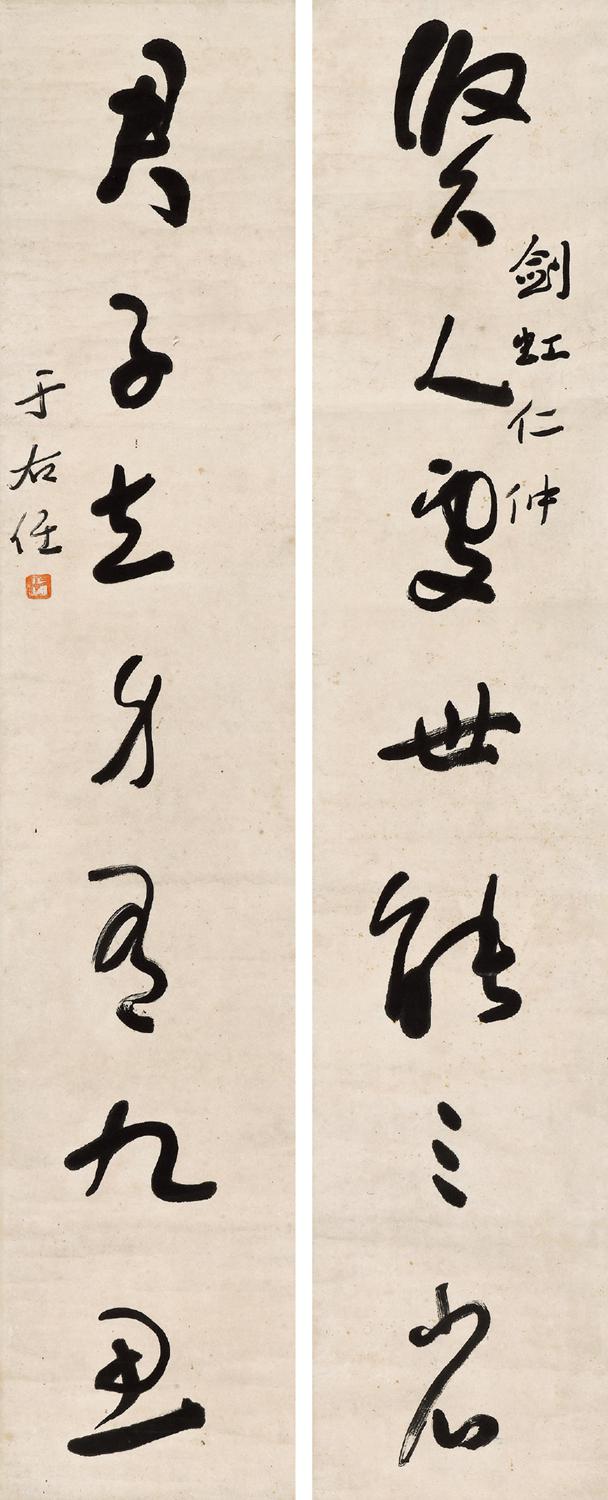 劍虹仁仲
賢人處世能三省
君子立身有九思
于右任